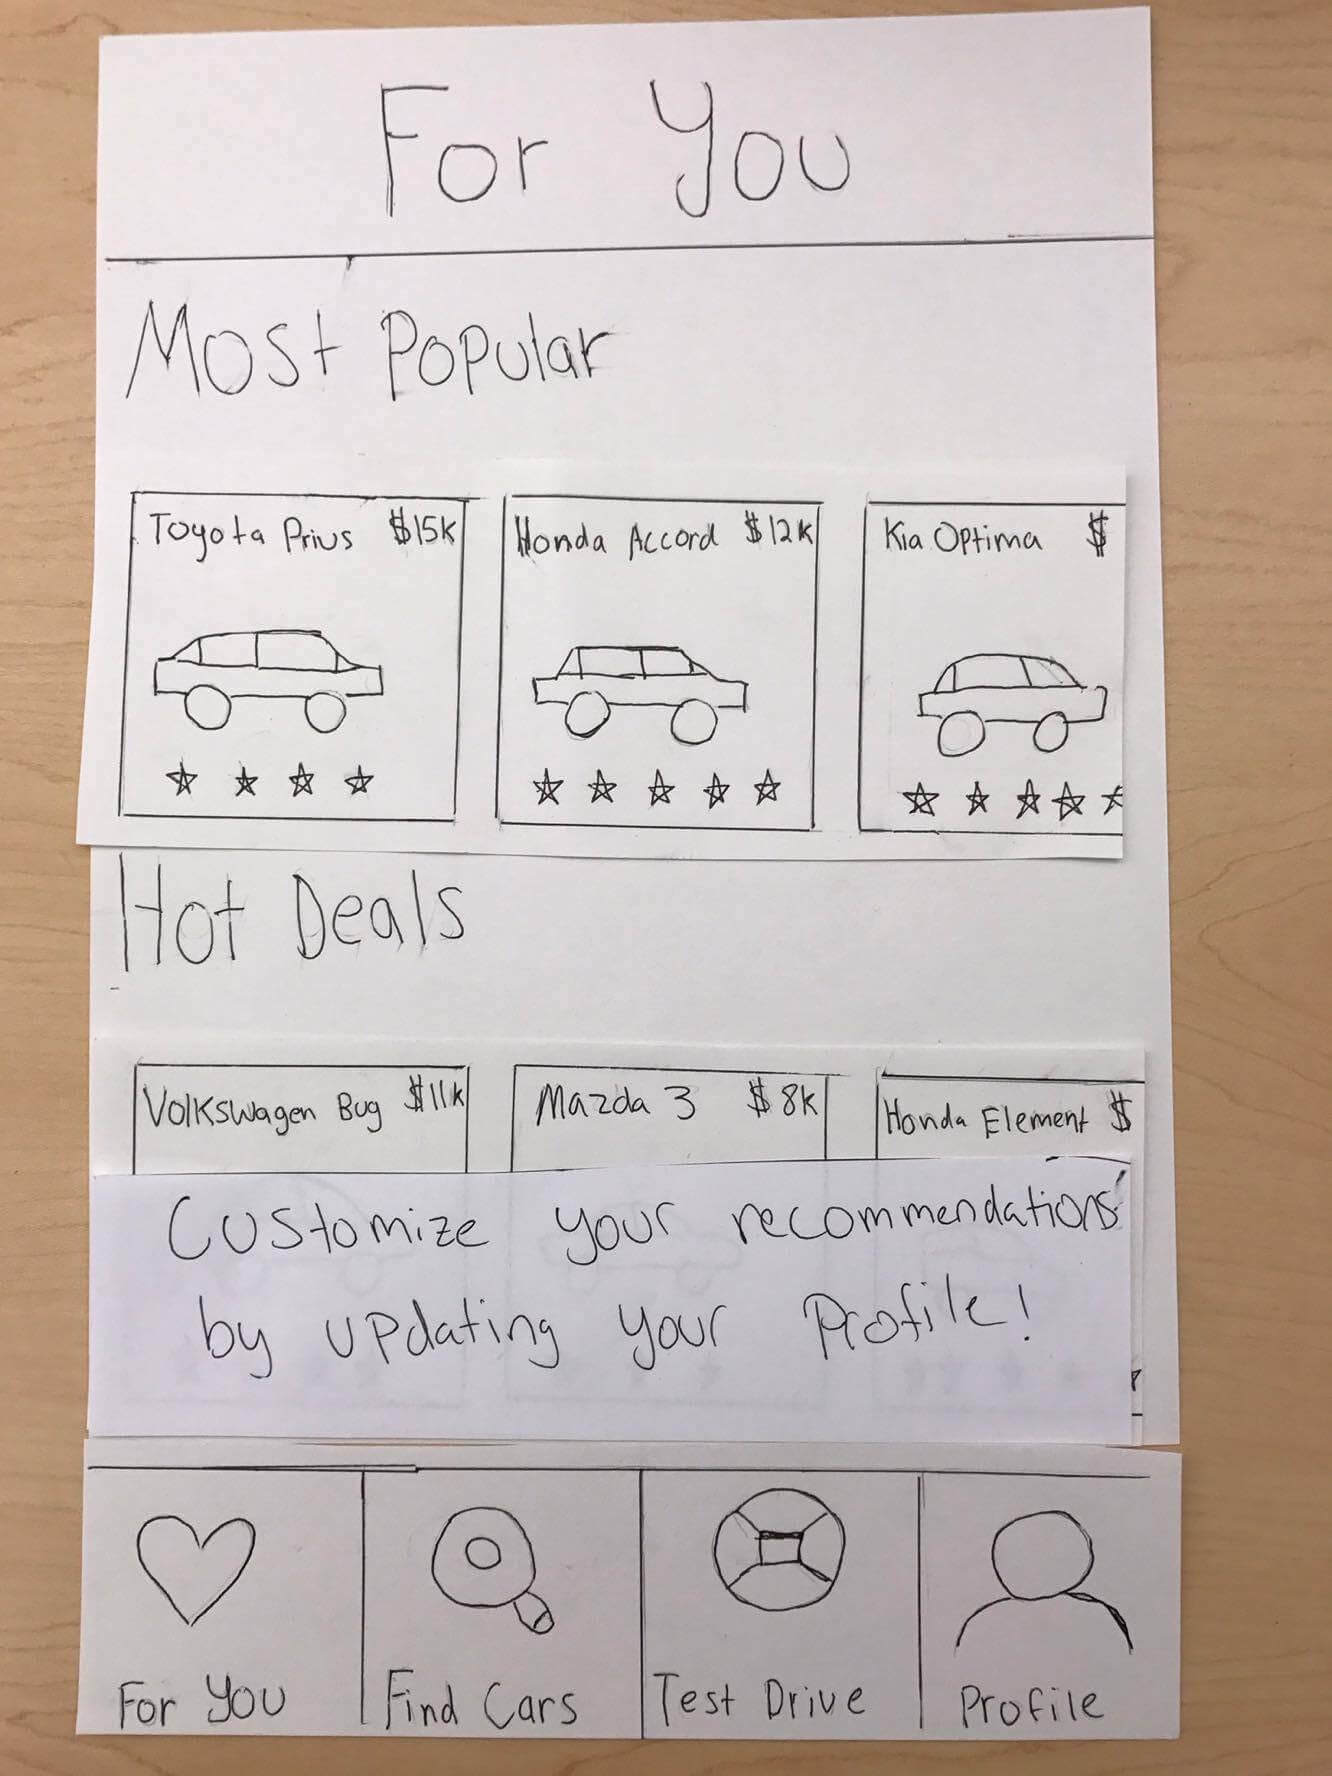 For You
Most Popular
Toyota Prius $15k
Honda Accord $12k
Kia Optima $
Hot Deals
Volkswagen Bug $11k
Mazda 3 $8k
Honda Element $
Customize your recommendations
by updating your Profile!
For You
Find Cars
Test Drive
Profile